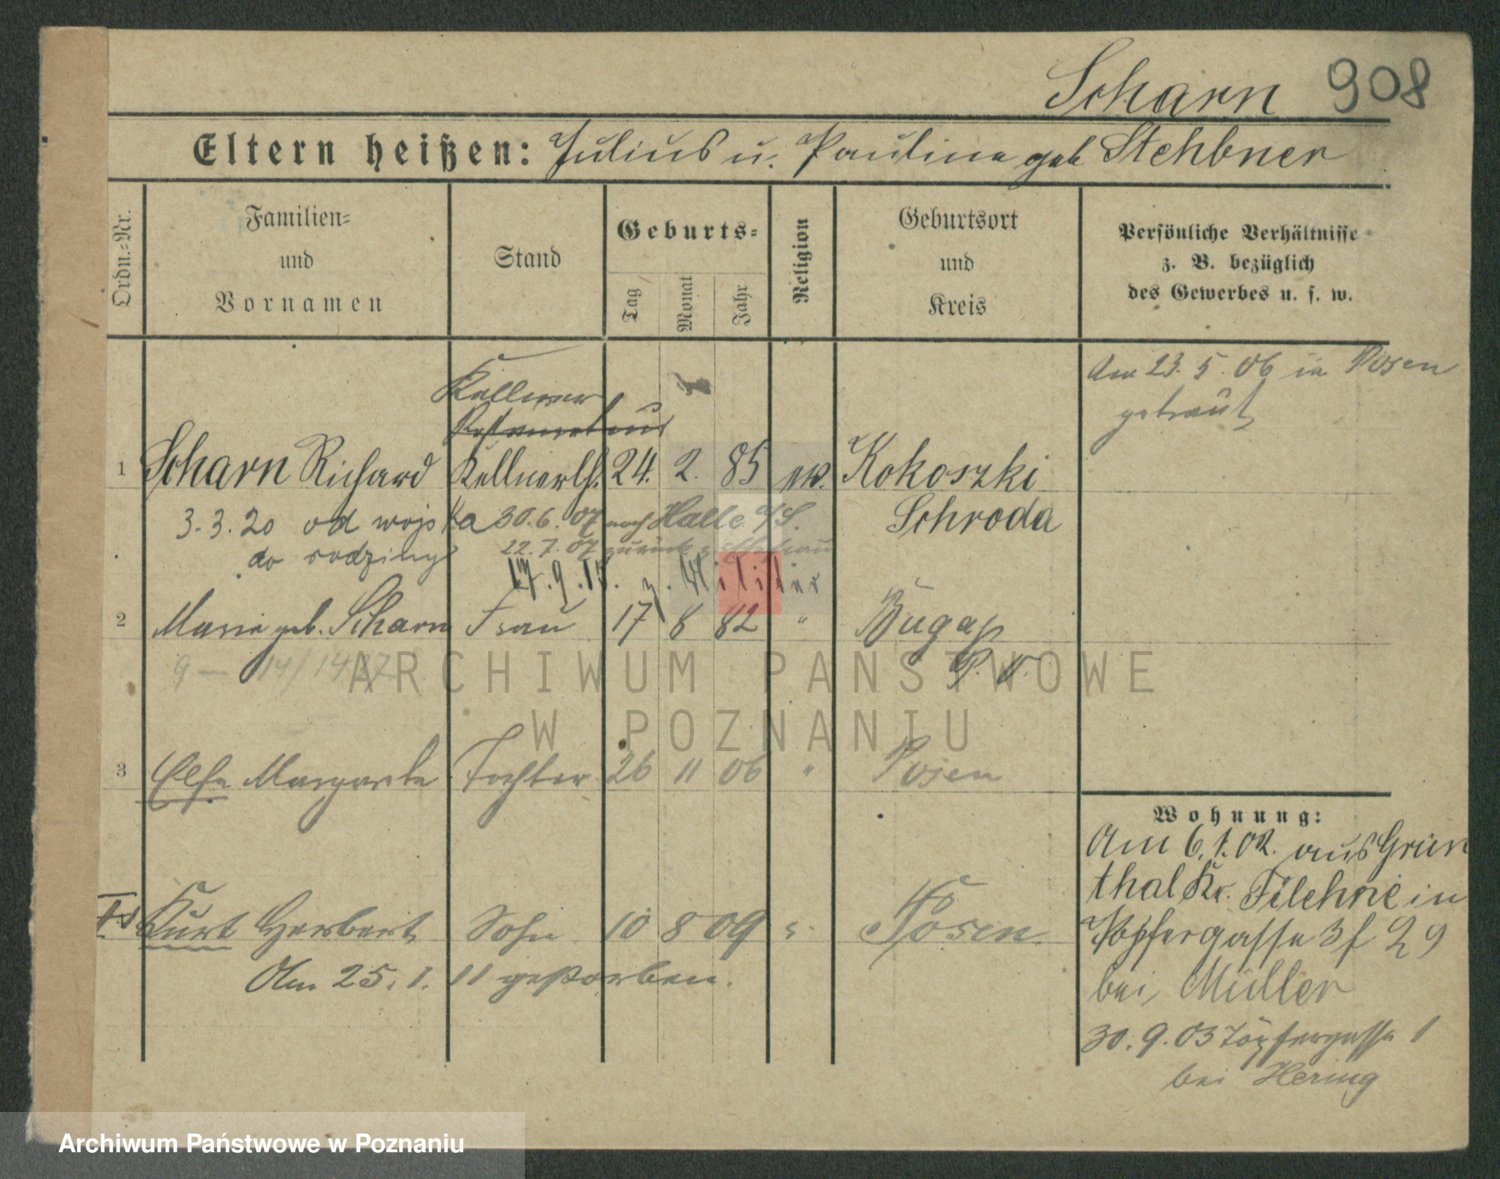 Scharn 908
Eltern heißen: Julius u. Pauline geb Stehbner
Ordn.-Nr.
Familien-
und
Vornamen
Stand
Geburts-
Tag
Monat
Jahr
Religion
Geburtsort
und
Kreis
Persönliche Verhältnisse
z. B. bezüglich
des Gewerbes u. s. w.
Am 23. 5. 06 in Posen
getraut
Kellner
1 Scharn Richard Kellnerlh. 24. 2. 85 ev. Kokoszki
Schroda
3. 3. 20 od wojska 30. 6. 07 nach Halle a/S.
do rodziny 22. 7. 07 zurück
17. 9. 15. z. Militär
2 Marie geb. Scharn Frau 17 8 82 " Bugaj
9 — 14/14
3 Else Margarete Tochter 26 11 06 " Posen
Kurt Herbert Sohn 10 8 09 Posen
Am 25. 1. 11 gestorben.
Wohnung:
Am 6. 1. 02. aus Grün
thal Kr. Filehne in
Töpfergasse 3 f 29
bei Müller
30. 9. 03 Töpfergasse 1
bei Hering
ARCHIWUM PAŃSTWOWE
W POZNANIU
Archiwum Państwowe w Poznaniu